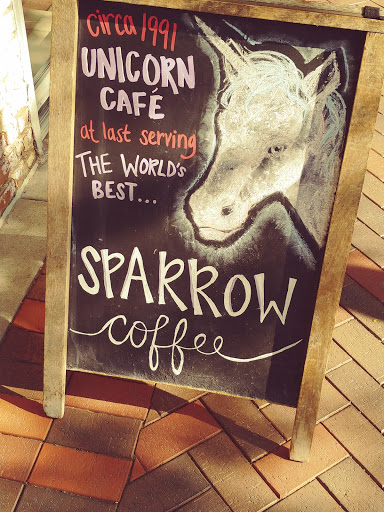 circa 1991
UNICORN
CAFÉ
at last serving
THE WORLD'S
BEST...
SPARROW
coffee